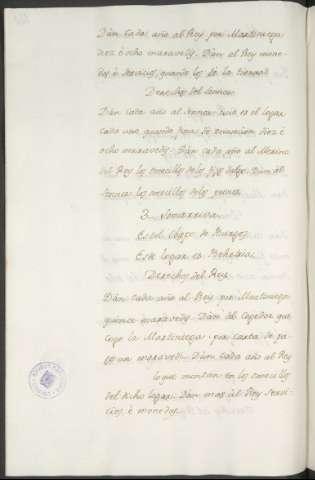 Dan cada año al Rey por Martiniega
diez é ocho maravedis. Dan al Rey mone-
das é servicios, quando los de la tierra.
Derechos del Señor
Dan cada año al Señor cuia es el logar
cada uno quando
ocho maravedis. Dan cada año al Merino
del Rey los omecillos de los fijos dalgo. Dan al
Señor los omecillos de los
3 Somarriva
Es del Obispo de Burgos
Este logar es Behetria
Derechos del Rey
Dan cada año al Rey por Martiniega
quince maravedis. Dan al Cogedor que
coge la Martiniega por carta de pa-
go un maravedi. Dan cada año al Rey
lo que montan en los omecillos
del dicho logar. Dan mas al Rey servi-
cios, é monedas.